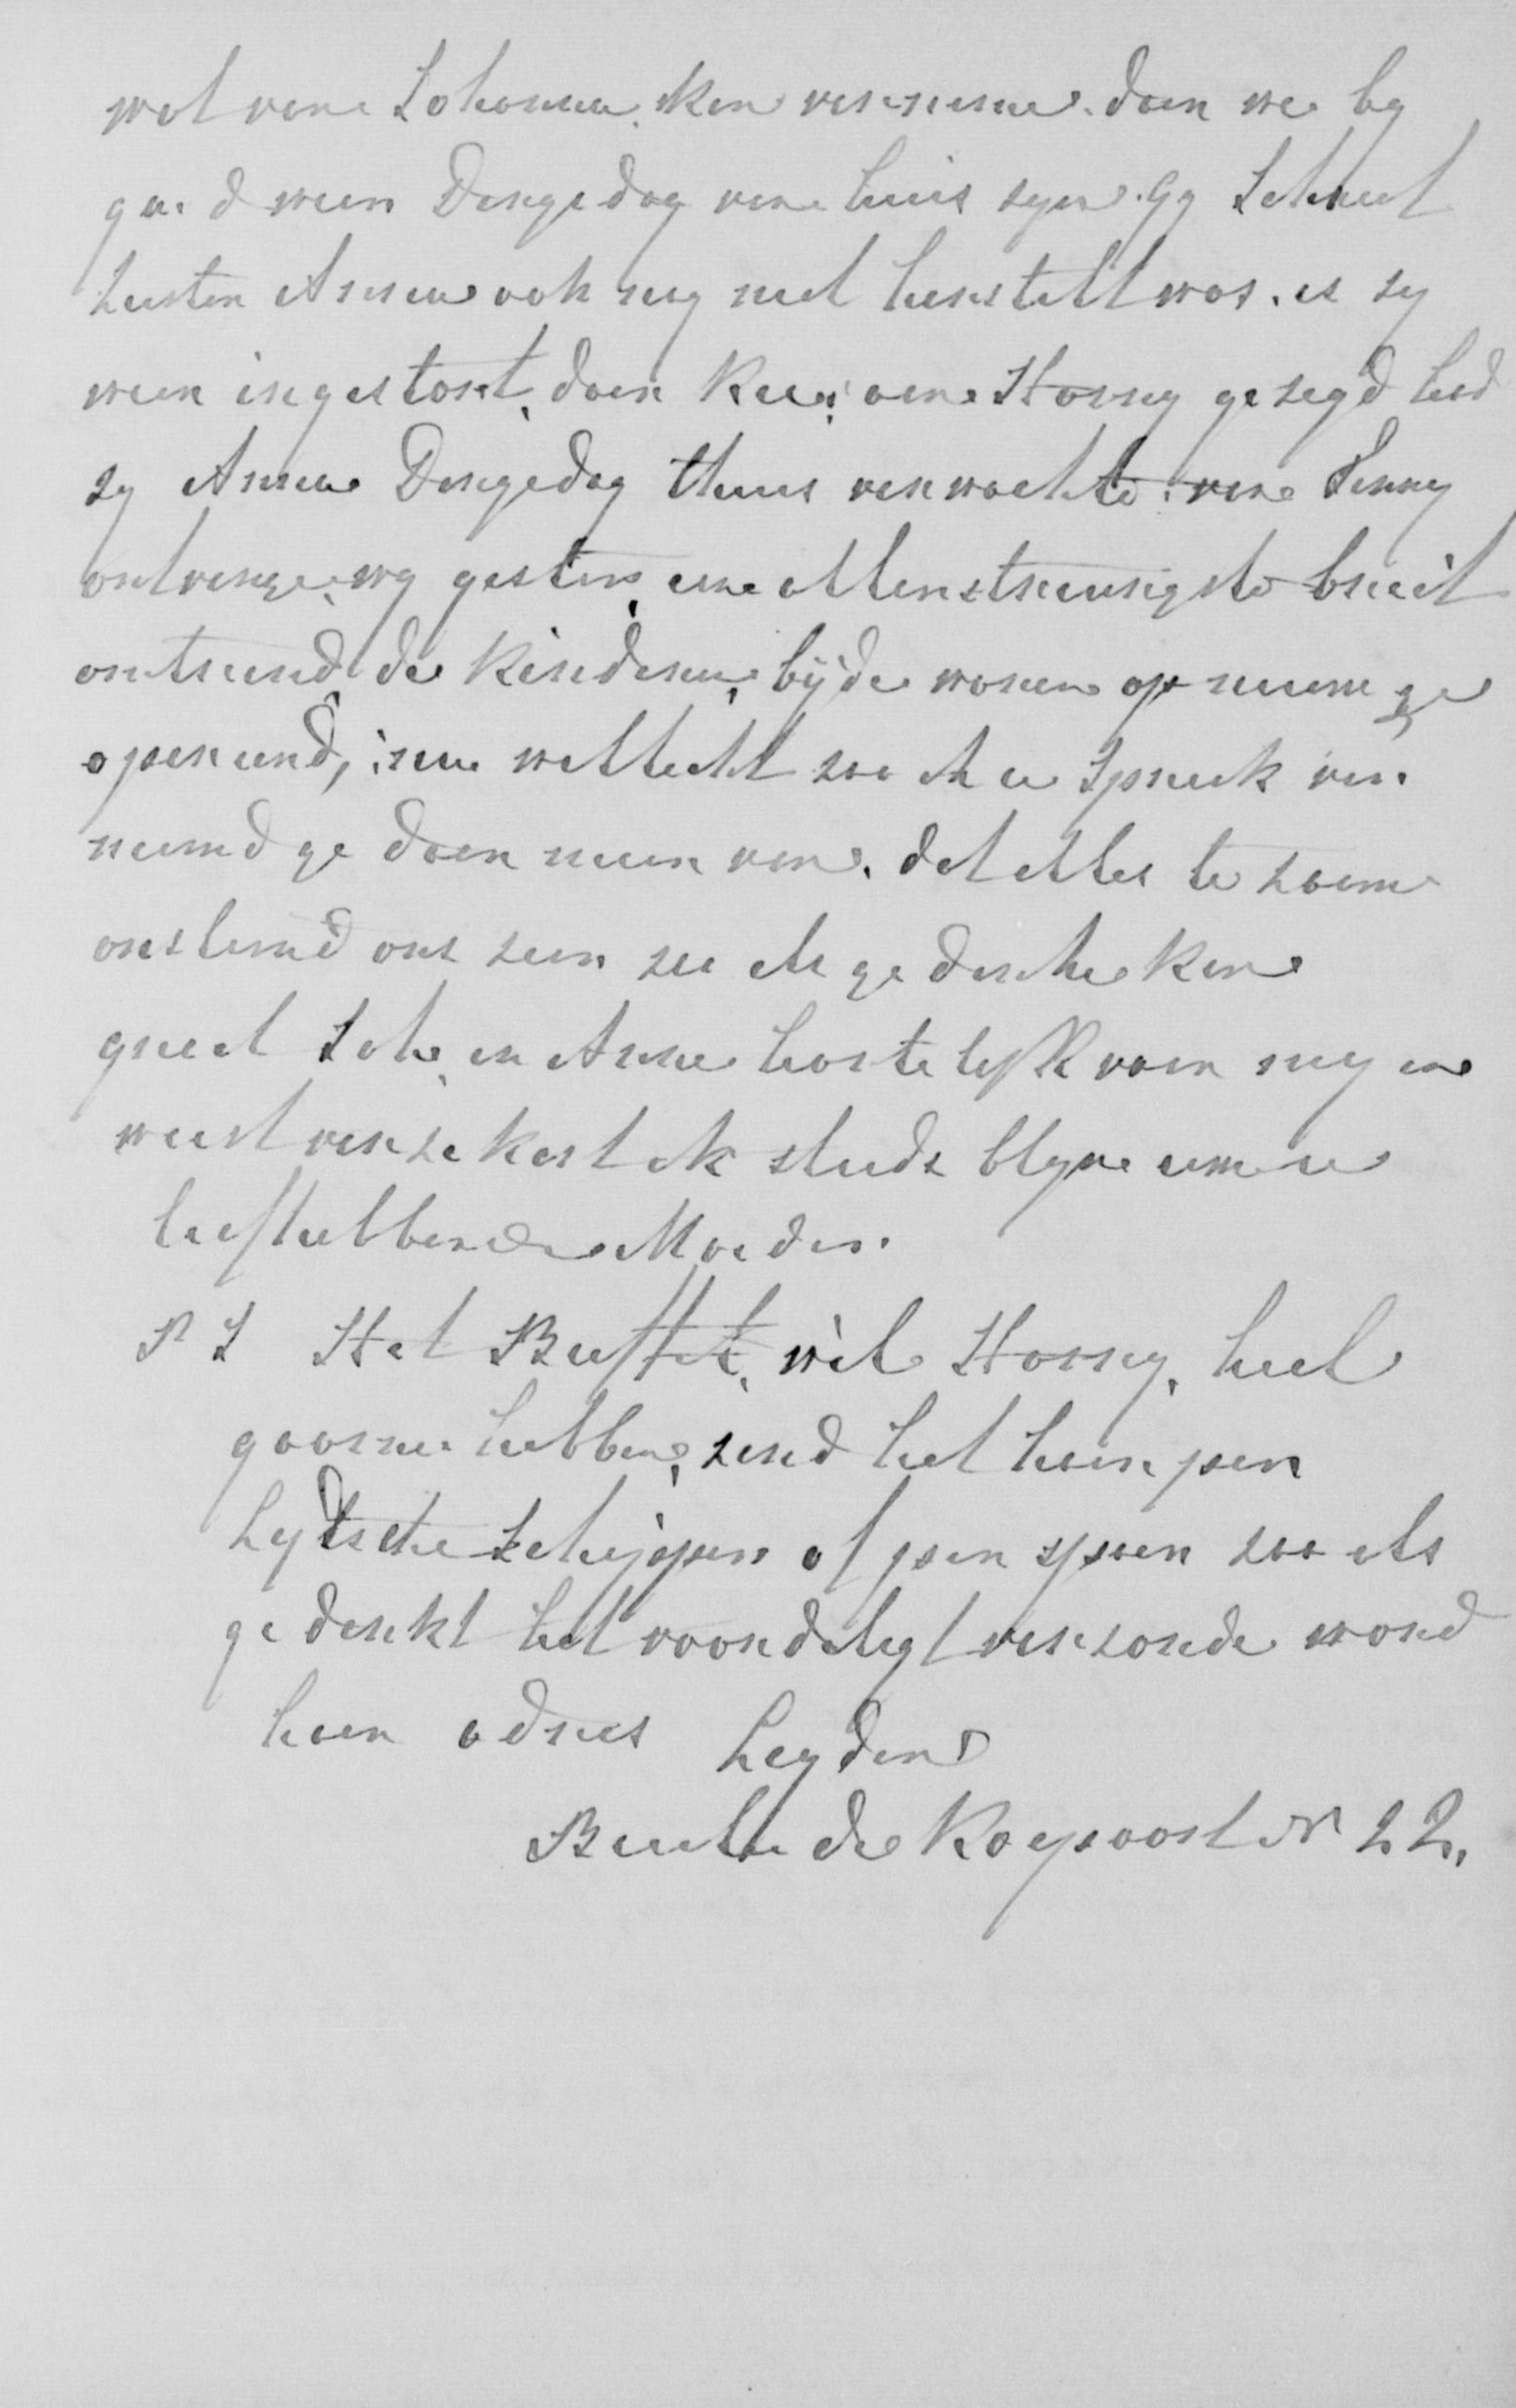 wat van Johanna kan vernemen. daar we by
g. d weer Dingsdag van huis zyn. Gy schreef
zuster Anna ook nog niet herstelt was. is zy
weer ingestort, daar Kee aan Harry gezegd had
zy Anna Dingsdag thuis verwachte. van Jenny
ontvinge wy gistere een allertreurigste brief
omtrend de kinderen, byde waren op nieuw ge
opereerd, nu wellicht zoo als u spreek ver
neemd ge daar meer van. dat alles te zaame
onstemd ons zeer zoo als ge denke kan
groet Joh. en Anna hartelyk voor my en
weest verzekert ik steeds blyve uwe u
liefhebbende Moeder.
P S Het Buffet, wil Harry, heel
gaarne hebben, zend het haar per
Lydsche schipper of per spoor zoo als
ge denkt het voordeligt verzonde word
haar adres Leyden
Buite de Koepoort N 22.